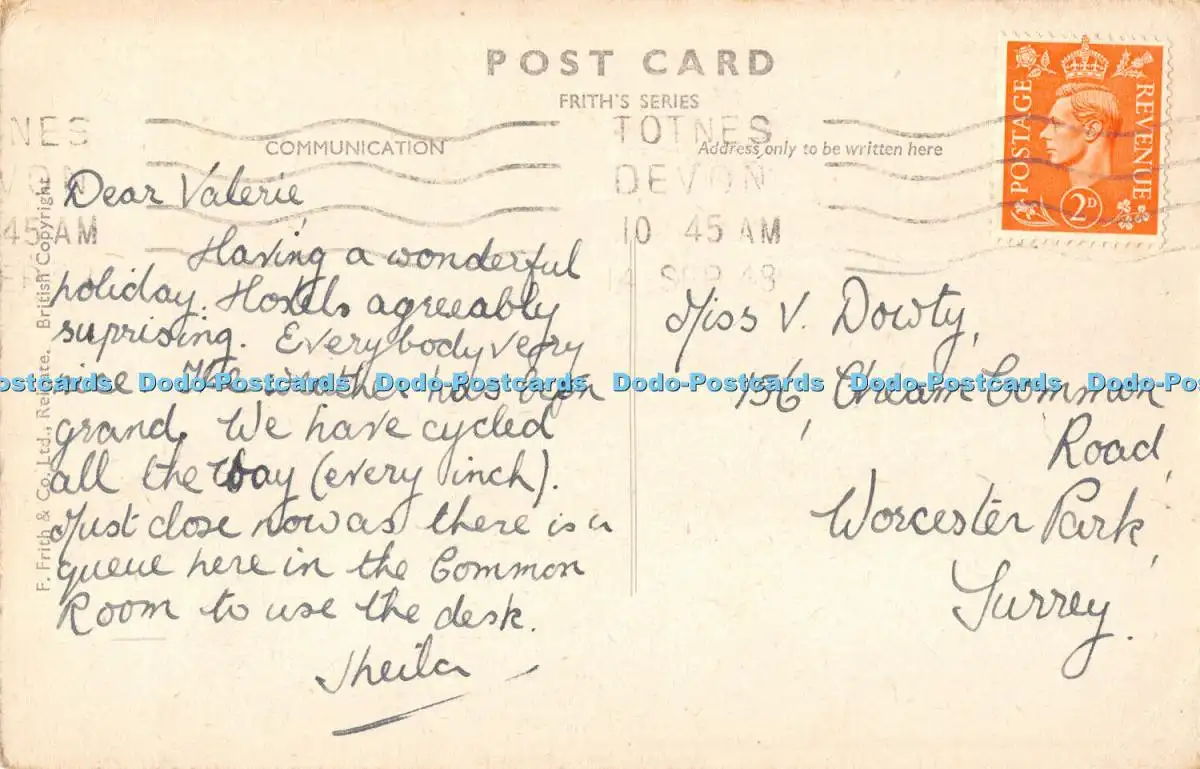 POST CARD
FRITH'S SERIES
COMMUNICATION
Address only to be written here
NES
45 AM
TOTNES
DEVON
10 45 AM
SEP 48
POSTAGE
REVENUE
2D
Dear Valerie,
Having a wonderful
holiday. Hostels agreeably
suprising. Everybody very
nice. The weather has been
grand. We have cycled
all the way (every inch).
Must close now as there is a
queue here in the Common
Room to use the desk.
Sheila
Miss V. Dowty,
156, Cheam Common
Road,
Worcester Park,
Surrey.
F. Frith & Co. Ltd., Reigate. British Copyright
Dodo-Postcards Dodo-Postcards Dodo-Postcards Dodo-Postcards Dodo-Postcards